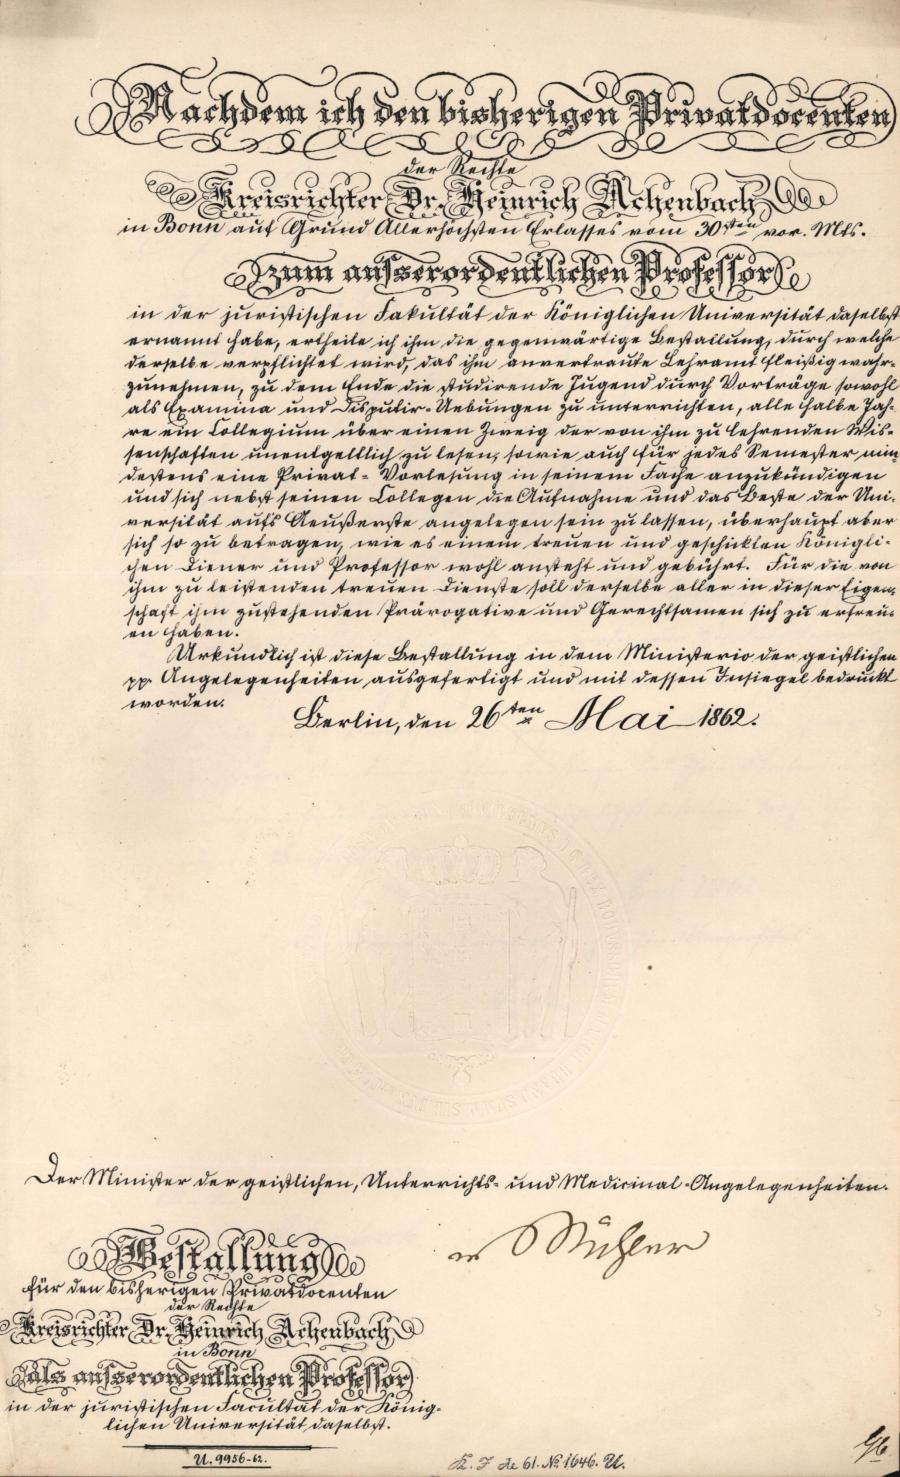 Nachdem ich den bisherigen Privatdocenten
der Rechte
Kreisrichter Dr. Heinrich Achenbach
in Bonn auf Grund Allerhöchsten Erlasses vom 30sten vor. Mts.
zum ausserordentlichen Professor
in der juristischen Fakultät der Königlichen Universität daselbst
ernannt habe, ertheile ich ihm die gegenwärtige Bestallung, durch welche
derselbe verpflichtet wird, das ihm anvertraute Lehramt fleißig wahr-
zunehmen, zu dem Ende die studirende Jugend durch Vorträge sowohl
als Examina und Disputir-Uebungen zu unterrichten, alle halbe Jah-
re ein Collegium über einen Zweig der von ihm zu lehrenden Wis-
senschaften unentgeltlich zu lesen, sowie auch für jedes Semester min-
destens eine Privat-Vorlesung in seinem Fache anzukündigen
und sich nebst seinen Collegen die Aufnahme und das Beste der Uni-
versität aufs Aeußerste angelegen sein zu lassen, überhaupt aber
sich so zu betragen, wie es einem treuen und geschickten Königli-
chen Diener und Professor wohl ansteht und gebührt. Für die von
ihm zu leistenden treuen Dienste soll derselbe aller in dieser Eigen-
schaft ihm zustehenden Prärogative und Gerechtsamen sich zu erfreu-
en haben.
Urkundlich ist diese Bestallung in dem Ministerio der geistlichen
pp. Angelegenheiten ausgefertigt und mit dessen Insiegel bedruckt
worden.
Berlin, den 26ten Mai 1862.
Der Minister der geistlichen, Unterrichts- und Medicinal-Angelegenheiten.
v Mühler
Bestallung
für den bisherigen Privatdocenten
der Rechte
Kreisrichter Dr. Heinrich Achenbach
in Bonn
als ausserordentlichen Professor
in der juristischen Facultät der König-
lichen Universität daselbst.
U. 9956-62.
61. No. 1646. U.